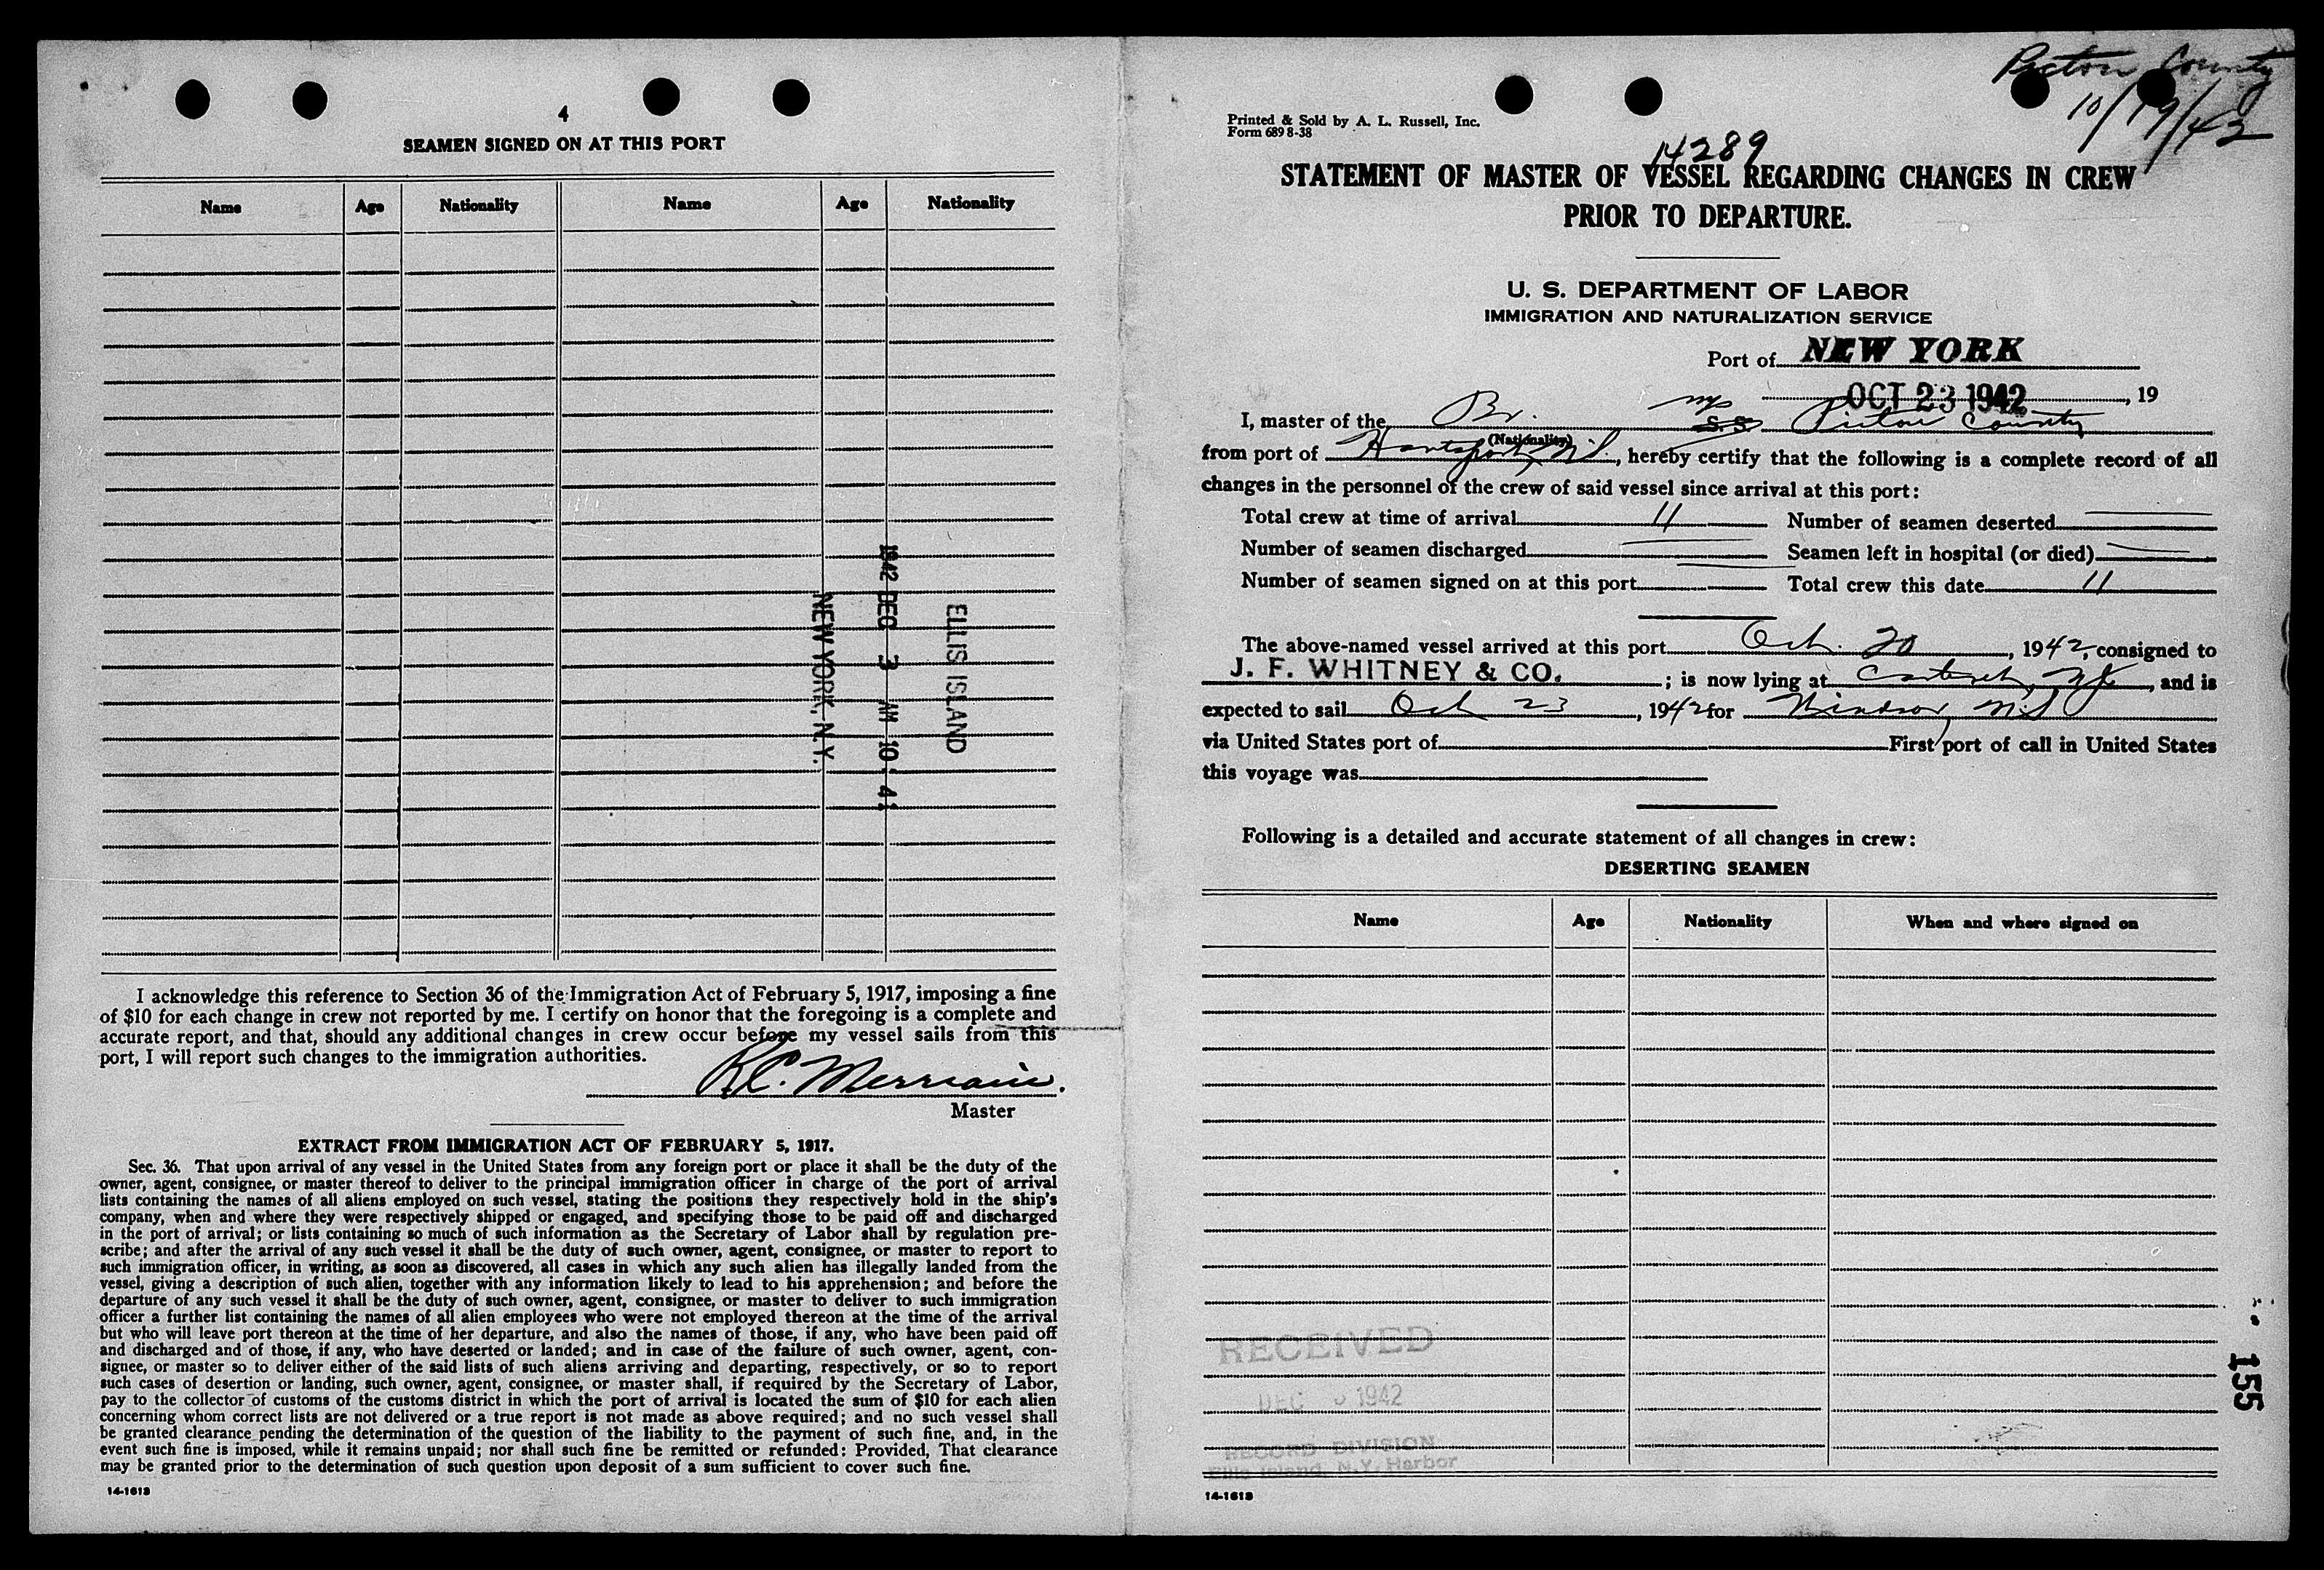 4
SEAMEN SIGNED ON AT THIS PORT
Name Age Nationality Name Age Nationality
ELLIS ISLAND
1942 DEC 3 AM 10:4
NEW YORK, N.Y.
I acknowledge this reference to Section 36 of the Immigration Act of February 5, 1917, imposing a fine
of $10 for each change in crew not reported by me. I certify on honor that the foregoing is a complete and
accurate report, and that, should any additional changes in crew occur before my vessel sails from this
port, I will report such changes to the immigration authorities.
R.C. Merriam.
Master
EXTRACT FROM IMMIGRATION ACT OF FEBRUARY 5, 1917.
Sec. 36. That upon arrival of any vessel in the United States from any foreign port or place it shall be the duty of the
owner, agent, consignee, or master thereof to deliver to the principal immigration officer in charge of the port of arrival
lists containing the names of all aliens employed on such vessel, stating the positions they respectively hold in the ship's
company, when and where they were respectively shipped or engaged, and specifying those to be paid off and discharged
in the port of arrival; or lists containing so much of such information as the Secretary of Labor shall by regulation pre-
scribe; and after the arrival of any such vessel it shall be the duty of such owner, agent, consignee, or master to report to
such immigration officer, in writing, as soon as discovered, all cases in which any such alien has illegally landed from the
vessel, giving a description of such alien, together with any information likely to lead to his apprehension; and before the
departure of any such vessel it shall be the duty of such owner, agent, consignee, or master to deliver to such immigration
officer a further list containing the names of all alien employees who were not employed thereon at the time of the arrival
but who will leave port thereon at the time of her departure, and also the names of those, if any, who have been paid off
and discharged and of those, if any, who have deserted or landed; and in case of the failure of such owner, agent, con-
signee, or master so to deliver either of the said lists of such aliens arriving and departing, respectively, or so to report
such cases of desertion or landing, such owner, agent, consignee, or master shall, if required by the Secretary of Labor,
pay to the collector of customs of the customs district in which the port of arrival is located the sum of $10 for each alien
concerning whom correct lists are not delivered or a true report is not made as above required; and no such vessel shall
be granted clearance pending the determination of the question of the liability to the payment of such fine, and, in the
event such fine is imposed, while it remains unpaid; nor shall such fine be remitted or refunded: Provided, That clearance
may be granted prior to the determination of such question upon deposit of a sum sufficient to cover such fine.
14-1613
Picton County
10/19/42
Printed & Sold by A. L. Russell, Inc.
Form 689 8-38
14289
STATEMENT OF MASTER OF VESSEL REGARDING CHANGES IN CREW
PRIOR TO DEPARTURE.
U. S. DEPARTMENT OF LABOR
IMMIGRATION AND NATURALIZATION SERVICE
Port of NEW YORK
OCT 23 1942, 19
I, master of the Br. S. S. Pictou County
(Nationality)
from port of Hantsport, N.S., hereby certify that the following is a complete record of all
changes in the personnel of the crew of said vessel since arrival at this port:
Total crew at time of arrival 11 Number of seamen deserted
Number of seamen discharged Seamen left in hospital (or died)
Number of seamen signed on at this port Total crew this date 11
The above-named vessel arrived at this port Oct. 20, 1942, consigned to
J. F. WHITNEY & CO.; is now lying at Carteret, NJ, and is
expected to sail Oct 23, 1942 for Windsor, N.S.
via United States port of First port of call in United States
this voyage was
Following is a detailed and accurate statement of all changes in crew:
DESERTING SEAMEN
Name Age Nationality When and where signed on
RECEIVED
DEC 1942
RECORD DIVISION
Ellis Island, N.Y. Harbor
155
14-1613